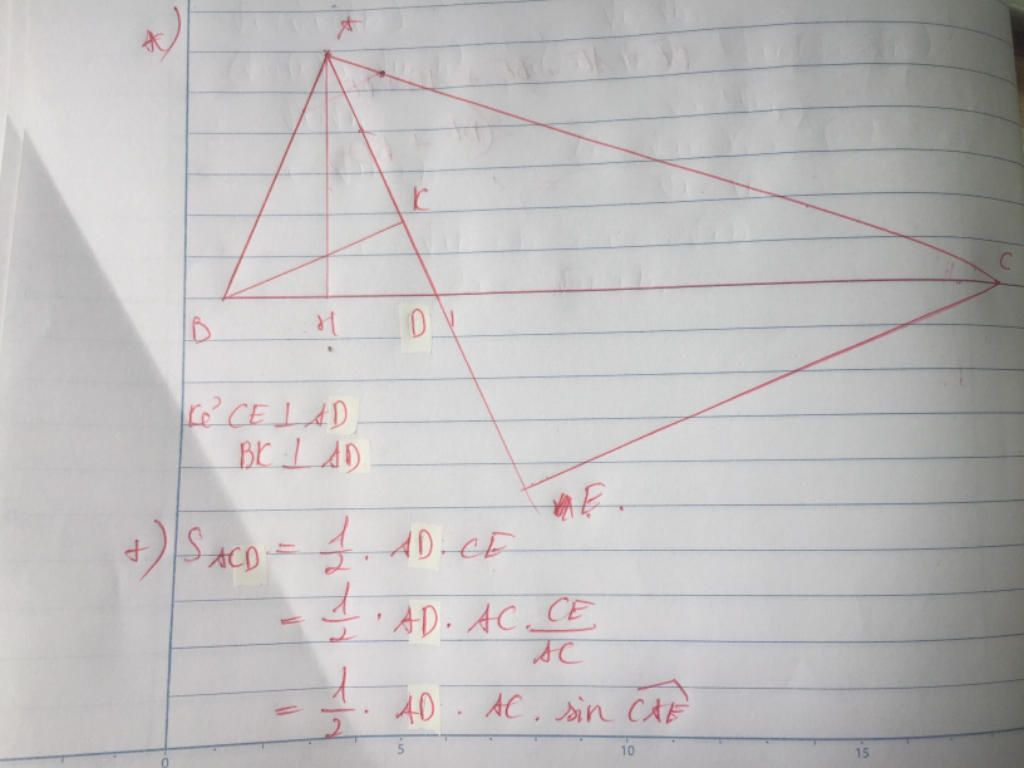 *)
A
K
C
B H D
Kẻ CE ⊥ AD
BK ⊥ AD
E.
+) S ACD = 1/2 . AD . CE
= 1/2 . AD . AC . CE/AC
= 1/2 . AD . AC . sin CAE
0 5 10 15